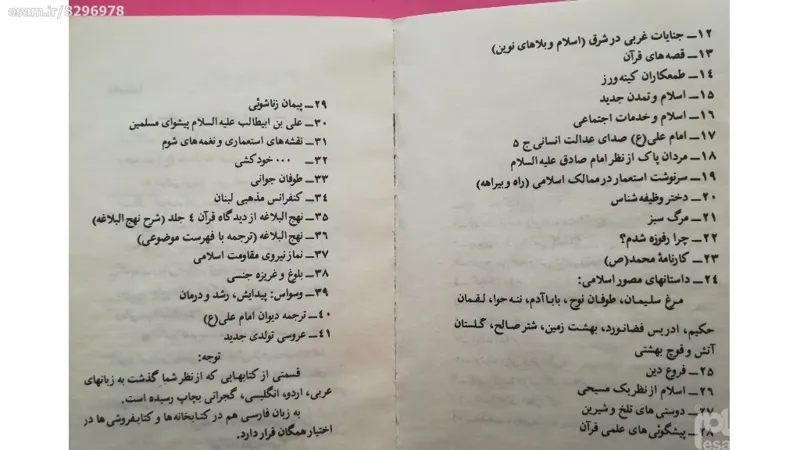 esam.ir/8296978
۱۲ــ جنایات غربی در شرق (اسلام و بلاهای نوین)
۱۳ــ قصه‌های قرآن
۱۴ــ طمعکاران کینه‌ورز
۱۵ــ اسلام و تمدن جدید
۱۶ــ اسلام و خدمات اجتماعی
۱۷ــ امام علی(ع) صدای عدالت انسانی ج ۵
۱۸ــ مردان پاک از نظر امام صادق علیه السلام
۱۹ــ سرنوشت استعمار در ممالک اسلامی (راه و بیراهه)
۲۰ــ دختر وظیفه‌شناس
۲۱ــ مرگ سبز
۲۲ــ چرا رفوزه شدم؟
۲۳ــ کارنامهٔ محمد(ص)
۲۴ــ داستانهای مصور اسلامی:
مرغ سلیمان، طوفان نوح، بابا آدم، ننه حوا، لقمان
حکیم، ادریس فضانورد، بهشت زمین، شتر صالح، گلستان
آتش و قوچ بهشتی
۲۵ــ فروع دین
۲۶ــ اسلام از نظر یک مسیحی
۲۷ــ دوستی‌های تلخ و شیرین
۲۸ــ پیشگوئی‌های علمی قرآن
۲۹ــ پیمان زناشوئی
۳۰ــ علی بن ابیطالب علیه السلام پیشوای مسلمین
۳۱ــ نقشه‌های استعماری و نغمه‌های شوم
۳۲ــ ۰۰۰ خودکشی
۳۳ــ طوفان جوانی
۳۴ــ کنفرانس مذهبی لبنان
۳۵ــ نهج البلاغه از دیدگاه قرآن ۴ جلد (شرح نهج البلاغه)
۳۶ــ نهج البلاغه (ترجمه با فهرست موضوعی)
۳۷ــ نماز نیروی مقاومت اسلامی
۳۸ــ بلوغ و غریزه جنسی
۳۹ــ وسواس: پیدایش، رشد و درمان
۴۰ــ ترجمه دیوان امام علی(ع)
۴۱ــ عروسی تولدی جدید
توجه:
قسمتی از کتابهایی که از نظر شما گذشت به زبانهای
عربی، اردو، انگلیسی، گجراتی بچاپ رسیده است.
به زبان فارسی هم در کتابخانه‌ها و کتابفروشی‌ها در
اختیار همگان قرار دارد.